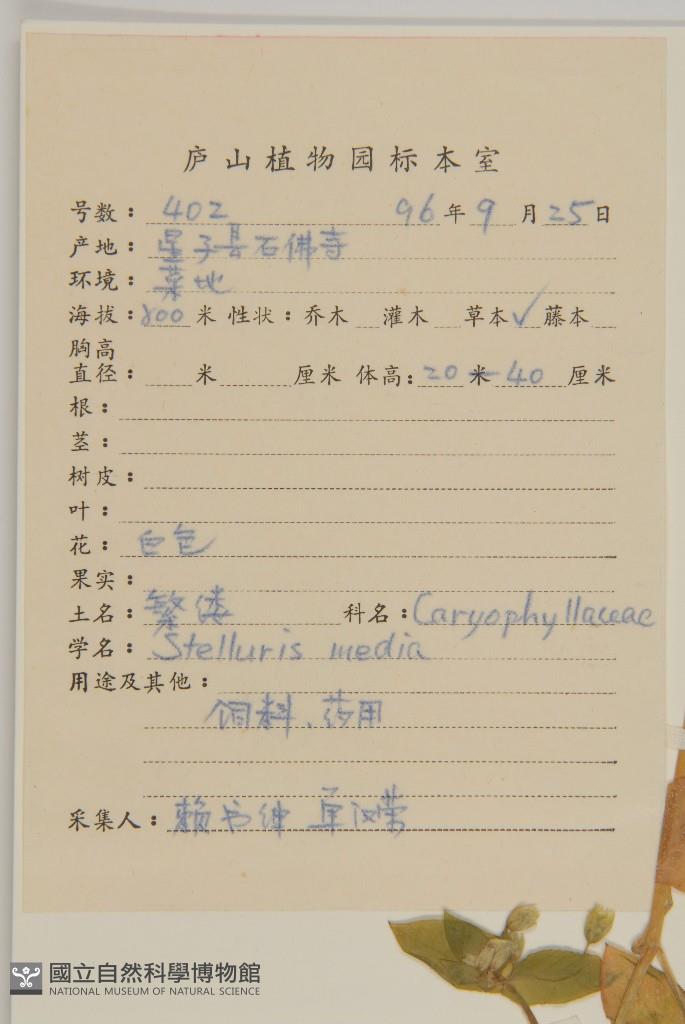 庐山植物园标本室
号数：402 96年9月25日
产地：星子县石佛寺
环境：菜地
海拔：800米 性状：乔木 灌木 草本✓ 藤本
胸高
直径： 米 厘米 体高：20米-40厘米
根：
茎：
树皮：
叶：
花：白色
果实：
土名：繁缕 科名：Caryophyllaceae
学名：Stelluris media
用途及其他：
饲料、药用
采集人：赖书绅 单汉荣
國立自然科學博物館
NATIONAL MUSEUM OF NATURAL SCIENCE